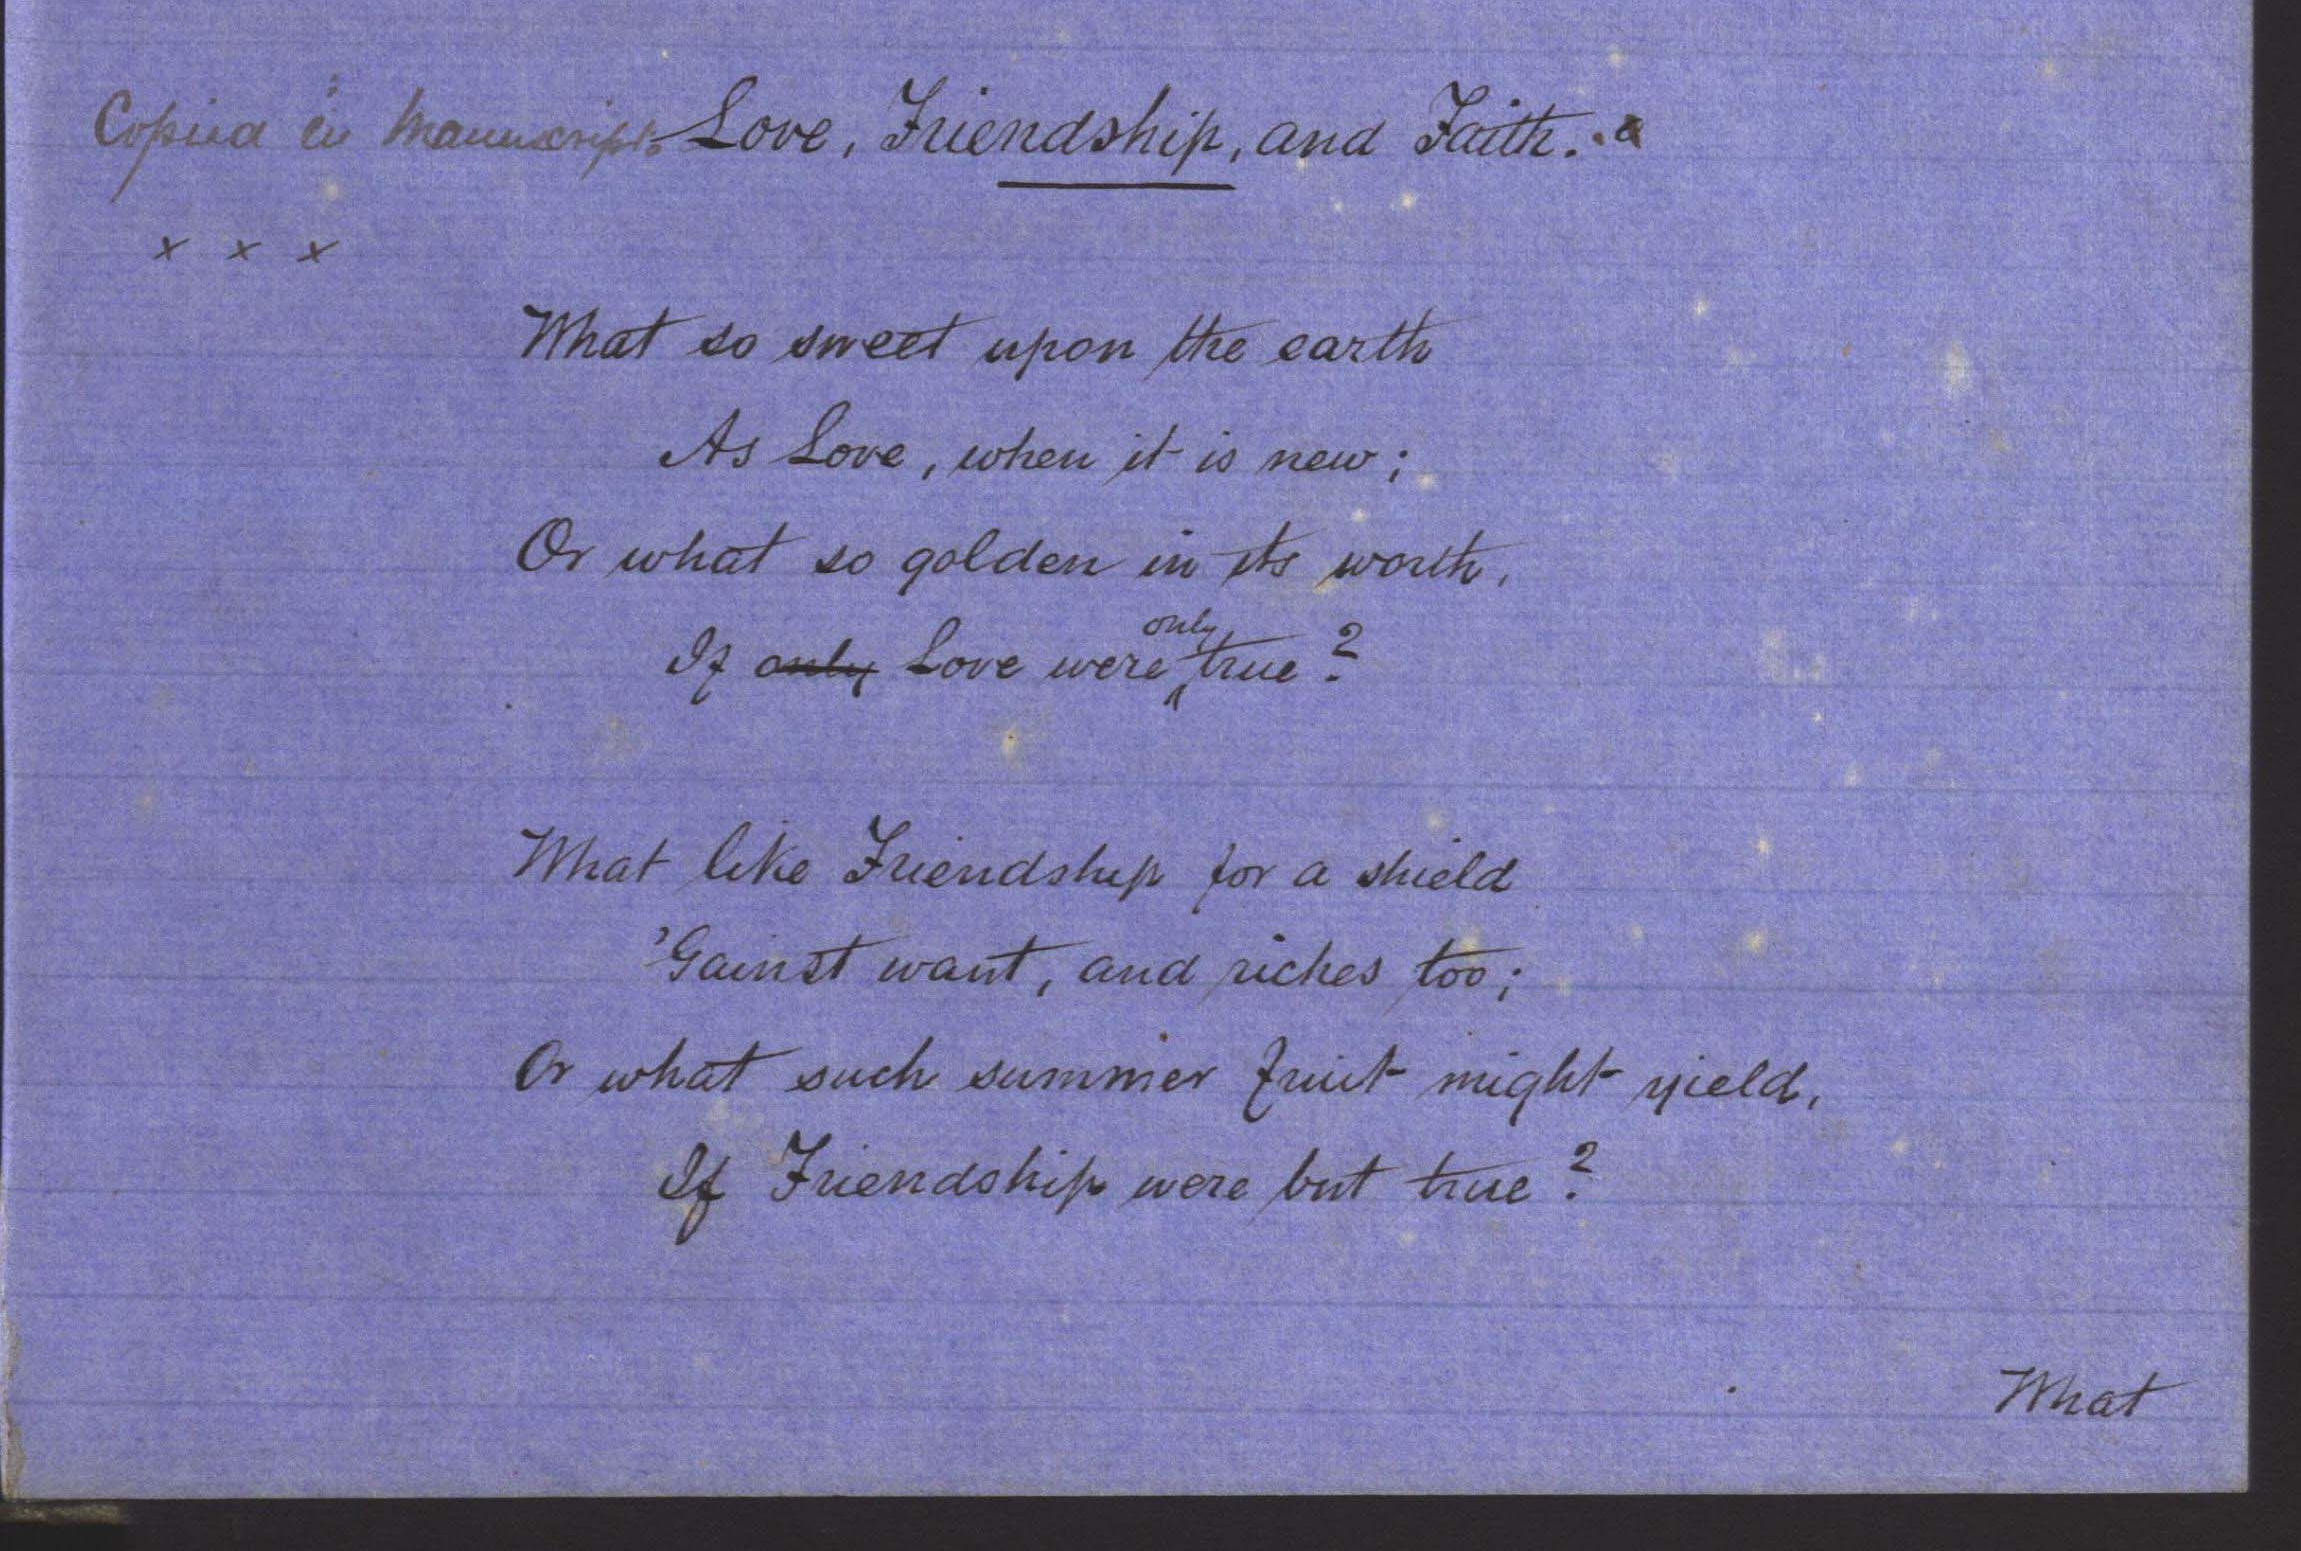 Copied in Manuscript. Love, Friendship, and Faith.
x x x
What so sweet upon the earth
As Love, when it is new;
Or what so golden in its worth,
If only Love were only true?
What like Friendship for a shield
'Gainst want, and riches too;
Or what such summer fruit might yield,
If Friendship were but true?
What